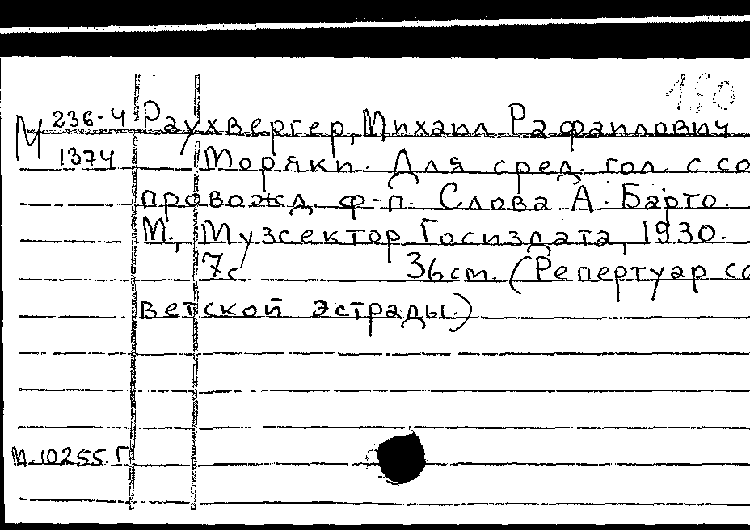 180
М 236-4 Раухвергер, Михаил Рафаилович
1374 Моряки. Для сред. гол. с со
провожд. ф-п. Слова А. Барто.
М., Музсектор Госиздата, 1930.
7с 36см. (Репертуар со
ветской эстрады.)
М.10255.Г